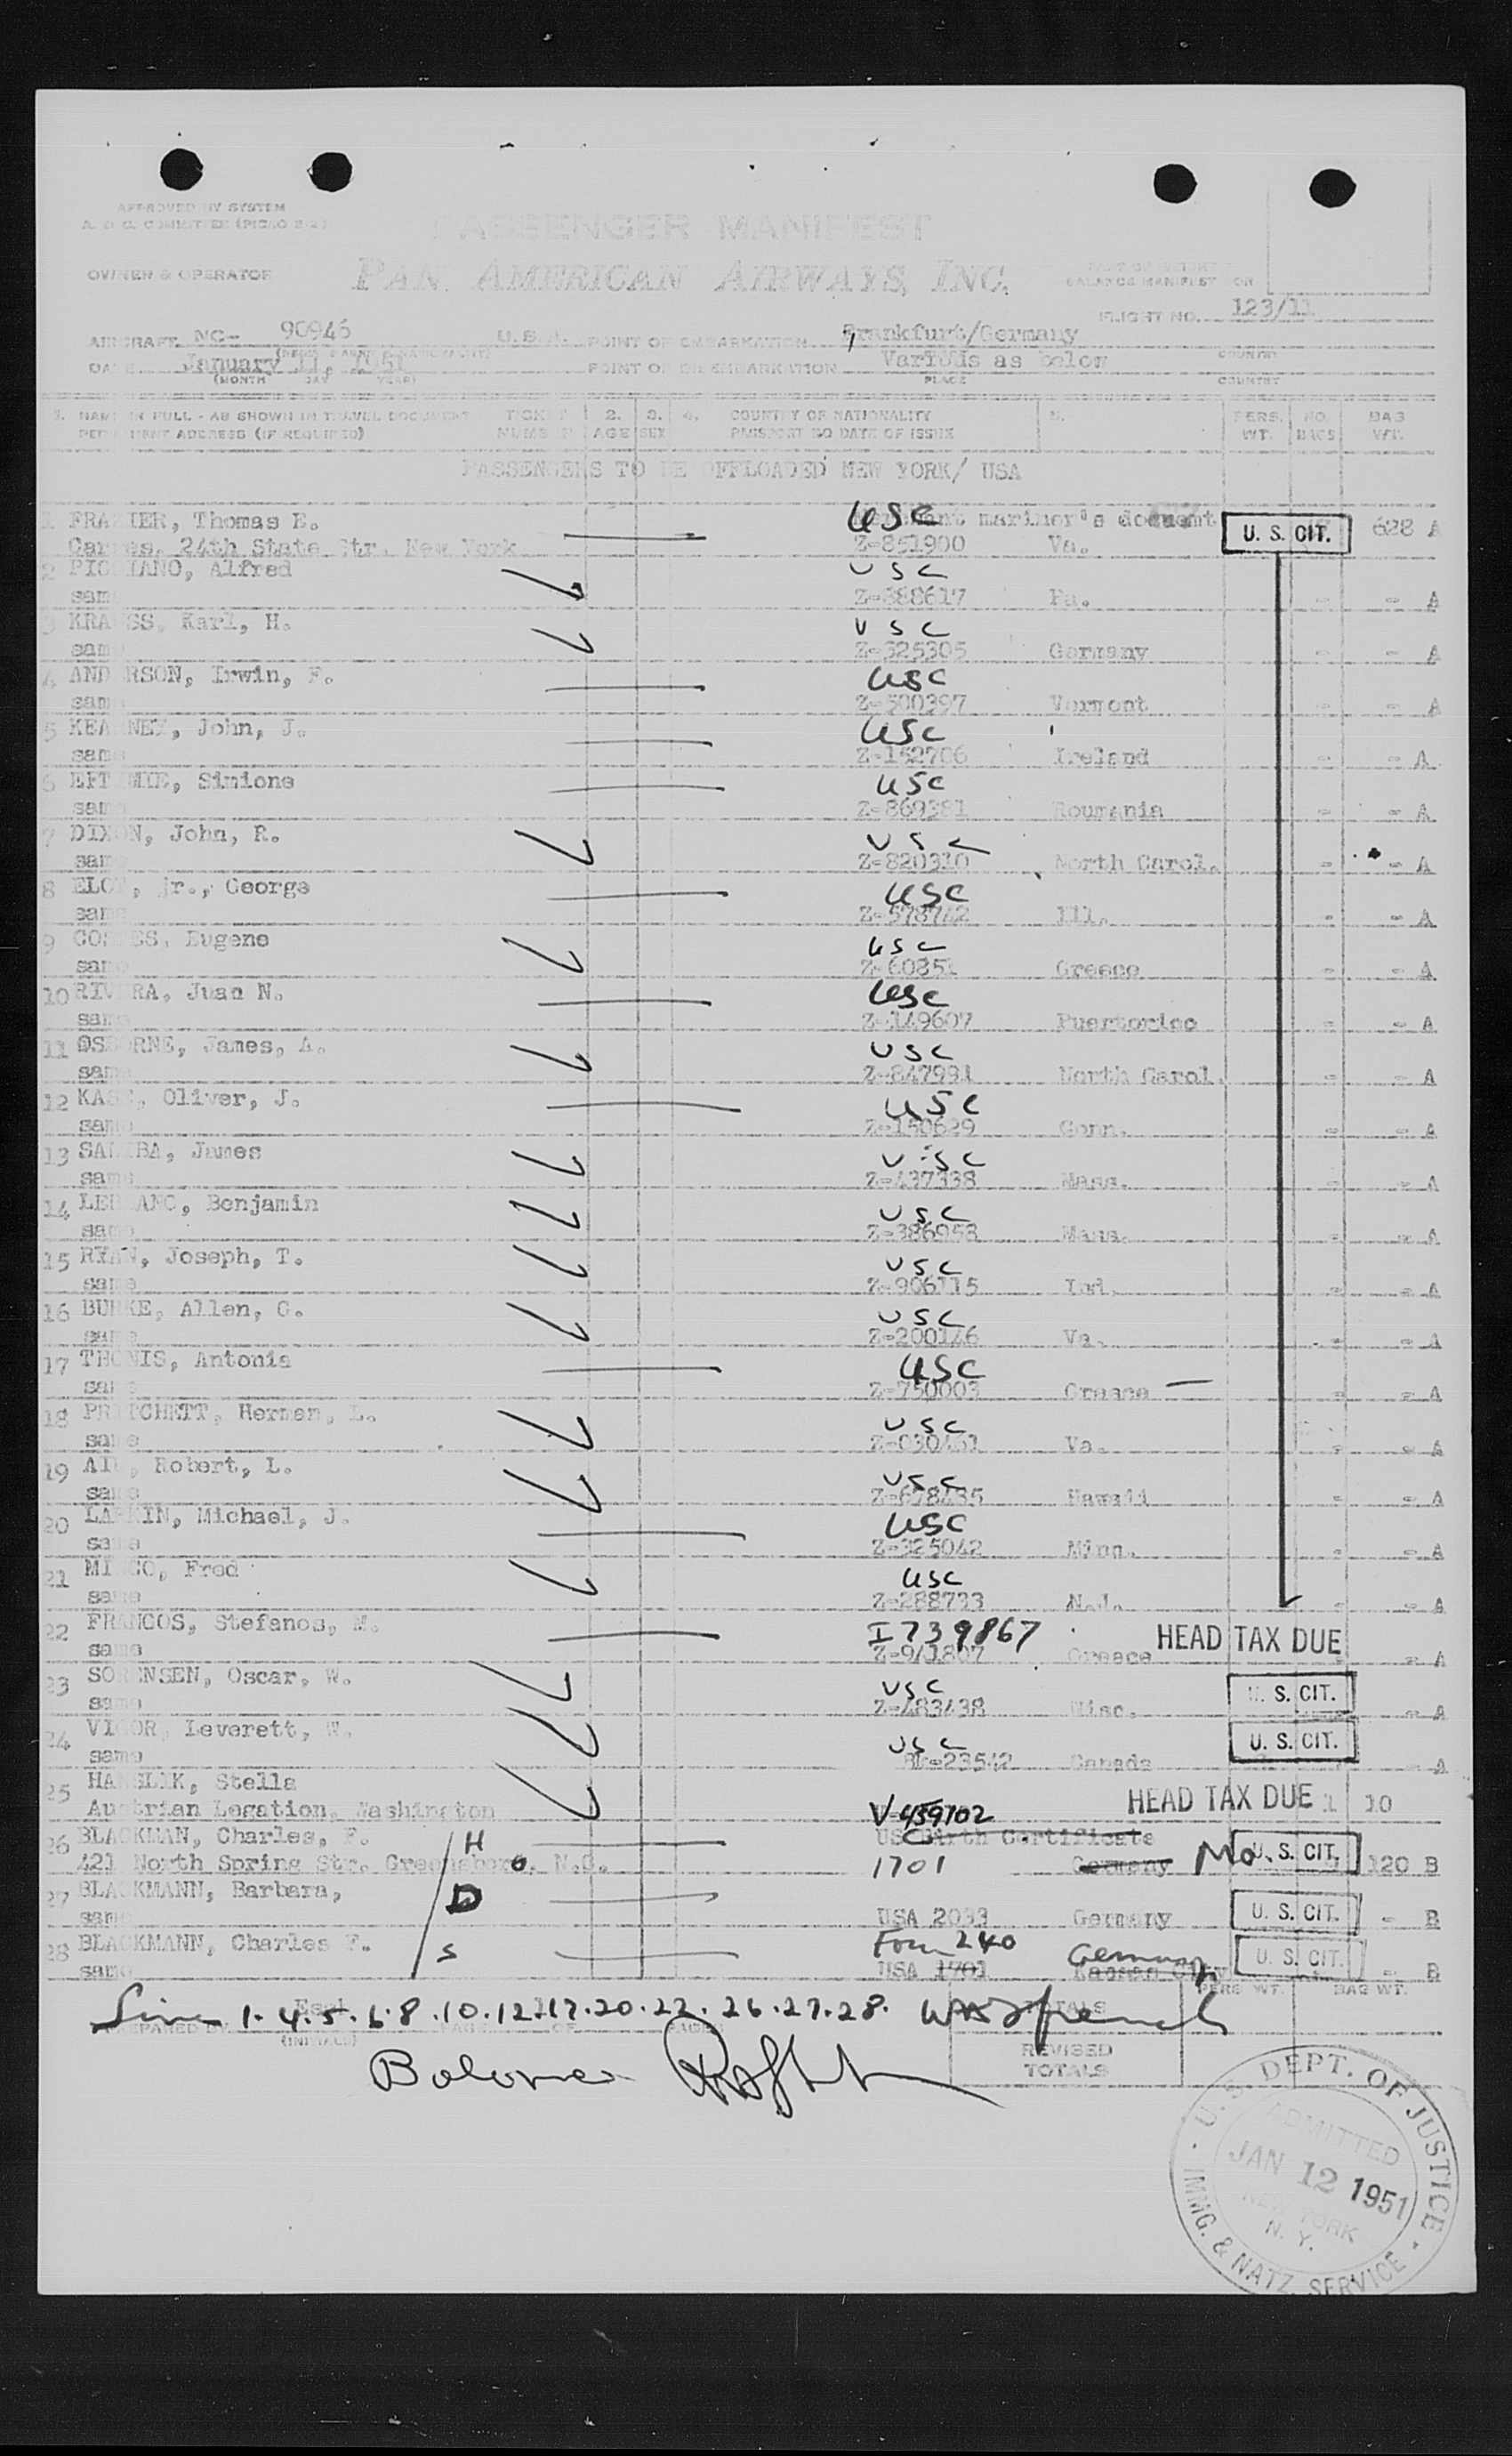 APPROVED BY SYSTEM
PASSENGER MANIFEST
OWNER & OPERATOR
PAN AMERICAN AIRWAYS, INC.
FLIGHT NO. 123/11
AIRCRAFT NC- 90946 U.S.A. POINT OF EMBARKATION Frankfurt/Germany
DATE January 11, 1951 POINT OF DISEMBARKATION Various as below
(MONTH DAY YEAR) PLACE COUNTRY
1. NAME IN FULL - AS SHOWN IN TRAVEL DOCUMENT TICKET 2. 3. 4. COUNTRY OF NATIONALITY 5. PERS. NO. BAG
PERMANENT ADDRESS (IF REQUIRED) NUMBER AGE SEX PASSPORT NO DATE OF ISSUE WT. BAGS WT.
PASSENGERS TO BE OFFLOADED NEW YORK/ USA
1 FRAZIER, Thomas E. USC mariner's document U. S. CIT. 628 A
24th State Str. New York Z-851900 Va.
2 Alfred USC
same Z-388617 Pa. - - A
3 KRAUSS, Karl, H. USC
same Z-325305 Germany - - A
4 ANDERSON, Irwin, F. USC
same Z-500397 Vermont - - A
5 KEARNEY, John, J. USC
same Z-152706 Ireland - - A
6 EFTIMIE, Simione USC
same Z-869381 Roumania - - A
7 DIXON, John, R. USC
same Z-820310 North Carol. - - A
8 jr., George USC
same Z-578742 Ill. - - A
9 Eugene USC
same Z-60851 Greece - - A
10 RIVERA, Juan N. USC
same Z-149607 Puertorico - - A
11 OSBORNE, James, A. USC
same Z-847991 North Carol. - - A
12 Oliver, J. USC
same Z-150629 Conn. - - A
13 SALIBA, James USC
same Z-437338 Mass. - - A
14 LEBLANC, Benjamin USC
same Z-386953 Mass. - - A
15 RYAN, Joseph, T. USC
same Z-906115 Ind. - - A
16 BURKE, Allen, C. USC
same Z-200146 Va. - - A
17 THONIS, Antonis USC
same Z-750003 Greece - - A
18 PRITCHETT, Herman, L. USC
same Z-030451 Va. - - A
19 Robert, L. USC
same Z-678435 Hawaii - - A
20 LARKIN, Michael, J. USC
same Z-325042 Minn. - - A
21 Fred USC
same Z-288733 N.J. - - A
22 FRANCOS, Stefanos, M. I 739867 HEAD TAX DUE
same Greece - A
23 SORENSEN, Oscar, W. USC U. S. CIT.
same Z-483438 Wisc. - A
24 VIGOR, Leverett, W. USC U. S. CIT.
same Bk-23542 Canada A
25 HANSLIK, Stella HEAD TAX DUE 1 10
Austrian Legation, Washington V-459702
26 BLACKMAN, Charles, F. H US Birth Certificate
421 North Spring Str. Greensboro, N.C. 1701 Germany Mo. U. S. CIT. 120 B
27 BLACKMANN, Barbara, D U. S. CIT.
same USA 2033 Germany - B
28 BLACKMANN, Charles F. S Form 240 Germany U. S. CIT.
same USA 1701 Kansas City - B
PERS WT. BAG WT.
Line 1. 4. 5. 6. 8. 10. 12. 17. 20. 22. 26. 27. 28.
PREPARED BY PAGE OF PAGES TOTALS
(INITIALS)
REVISED
TOTALS
Balance
U. S. DEPT. OF JUSTICE
ADMITTED
JAN 12 1951
NEW YORK
N. Y.
IMMG. & NATZ. SERVICE